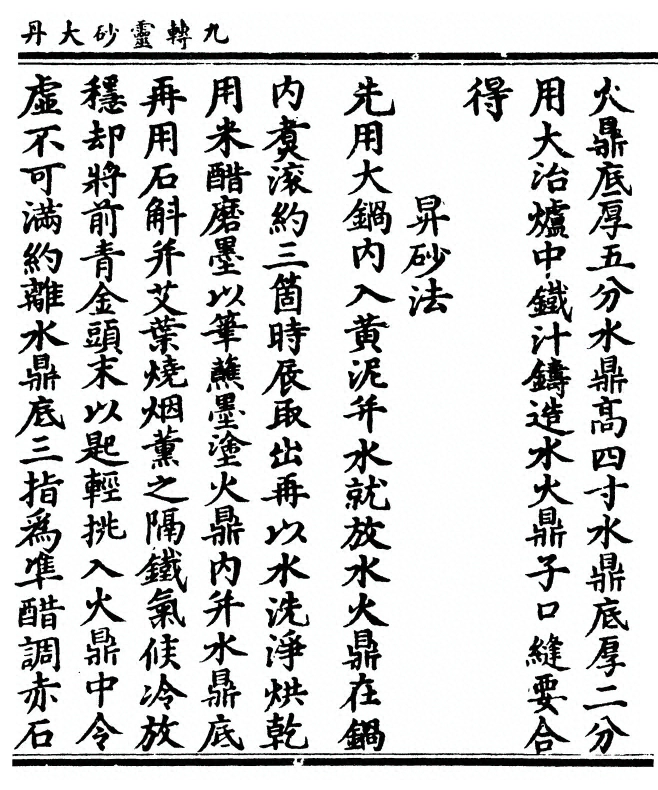 九轉靈砂大丹
火鼎底厚五分水鼎高四寸水鼎底厚二分
用大冶爐中鐵汁鑄造水火鼎子口縫要合
得
昇砂法
先用大鍋內入黃泥并水就放水火鼎在鍋
內煑滚約三箇時辰取出再以水洗淨烘乾
用米醋磨墨以筆蘸墨塗火鼎內并水鼎底
再用石斛并艾葉燒烟薰之隔鐵氣候冷放
穩却將前青金頭末以匙輕挑入火鼎中令
虛不可滿約離水鼎底三指爲準醋調赤石